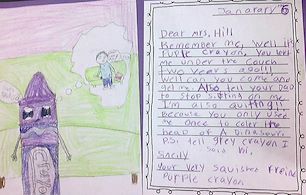 Janarary 6
Dear Mrs. Hill
Remember me, Well it's
Purple Crayon, You left
me under the couch
two years agoll
Well can you come and
get me. Also tell your Dad
to stop sitting on me
I'm also quitting
Because you only used
me once to color the
head of A Dinosaur.
P.S. tell grey crayon I
said hi,
Your very Squished Freind
Purple crayon